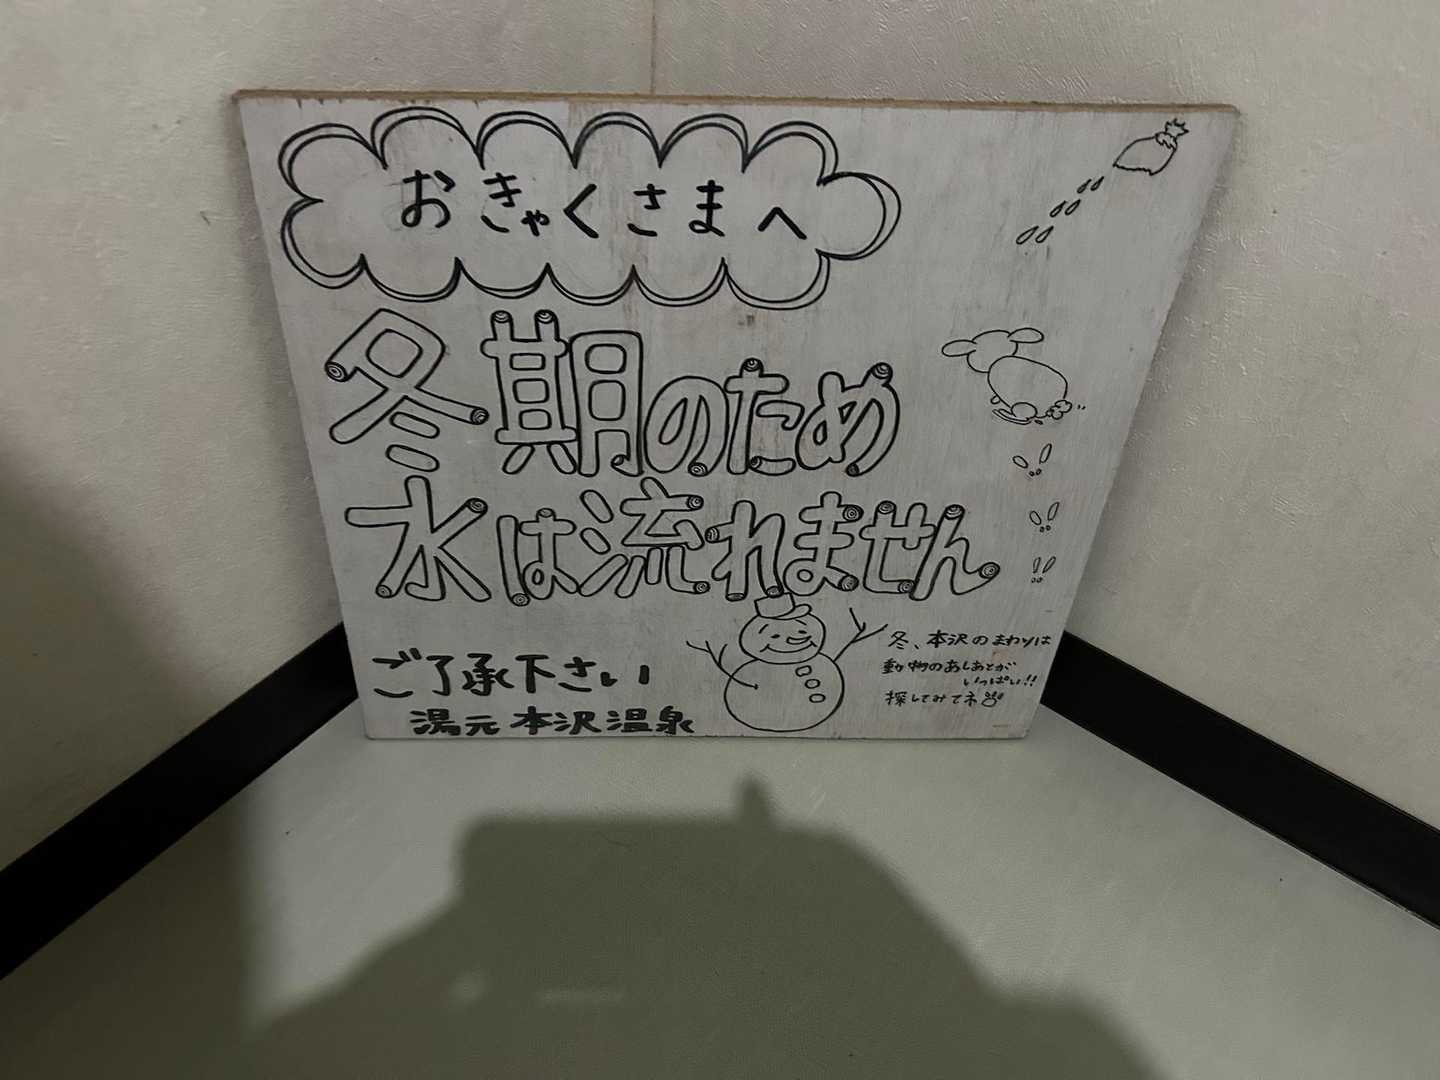 おきゃくさまへ
冬期のため
水は流れません
ご了承下さい
湯元 本沢温泉
冬、本沢のまわりは
動物のあしあとが
いっぱい!!
探してみてネ